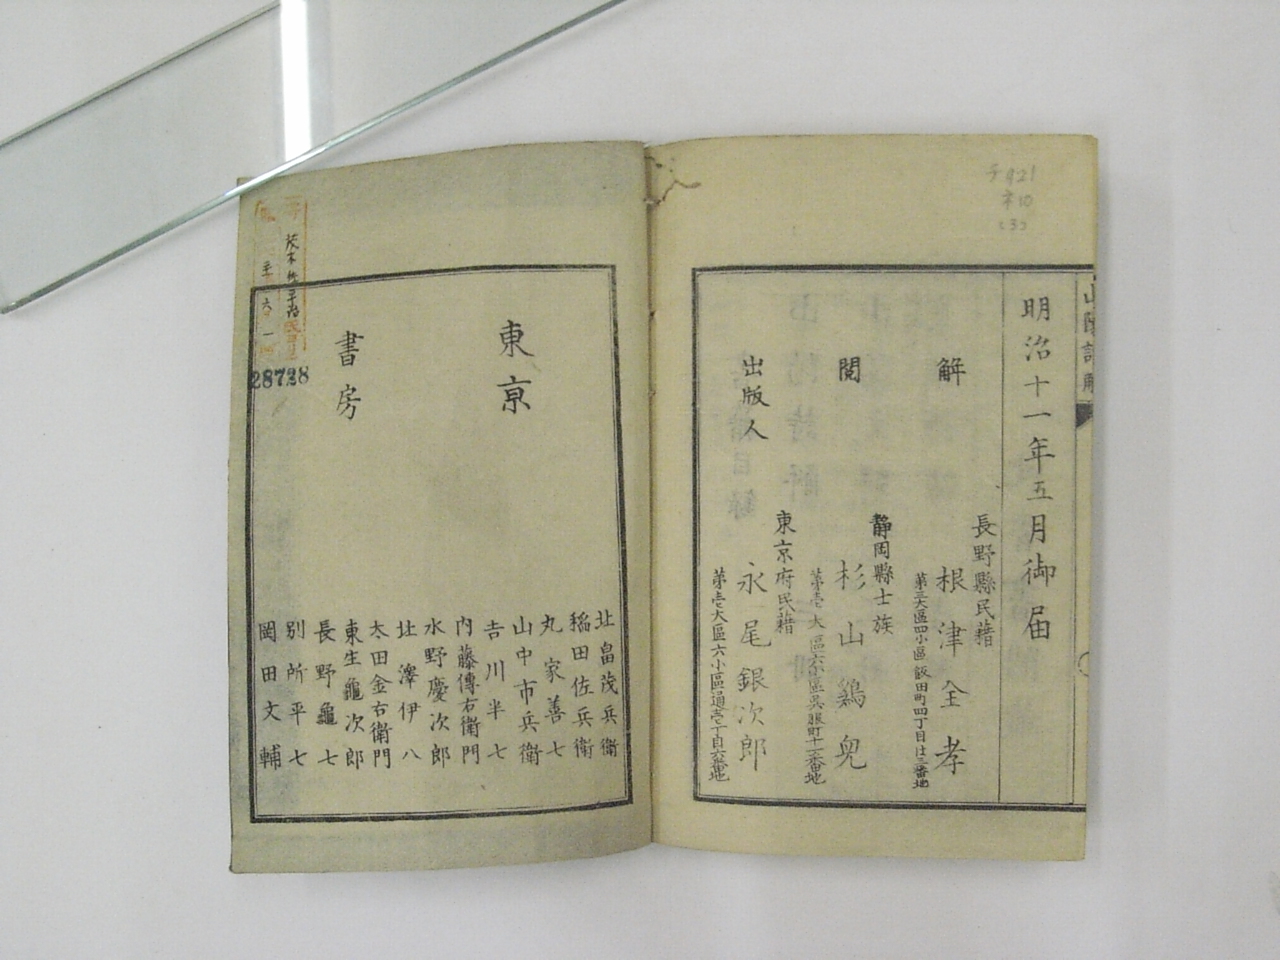 山陽詩解
明治十一年五月御届
長野縣民藉
解 根津全孝
第三大區四小區飯田町四丁目廿三番地
静岡縣士族
閲 杉山鷄兒
第壱大區六小區呉服町十一番地
東京府民藉
出版人 永尾銀次郎
第壱大區六小區通壱丁目六番地
子421
ネ10
(3)
東京
書房
北畠茂兵衛
稲田佐兵衛
丸家善七
山中市兵衛
吉川半七
内藤傳右衛門
水野慶次郎
北澤伊八
太田金右衛門
東生龜次郎
長野龜七
別所平七
岡田文輔
28728